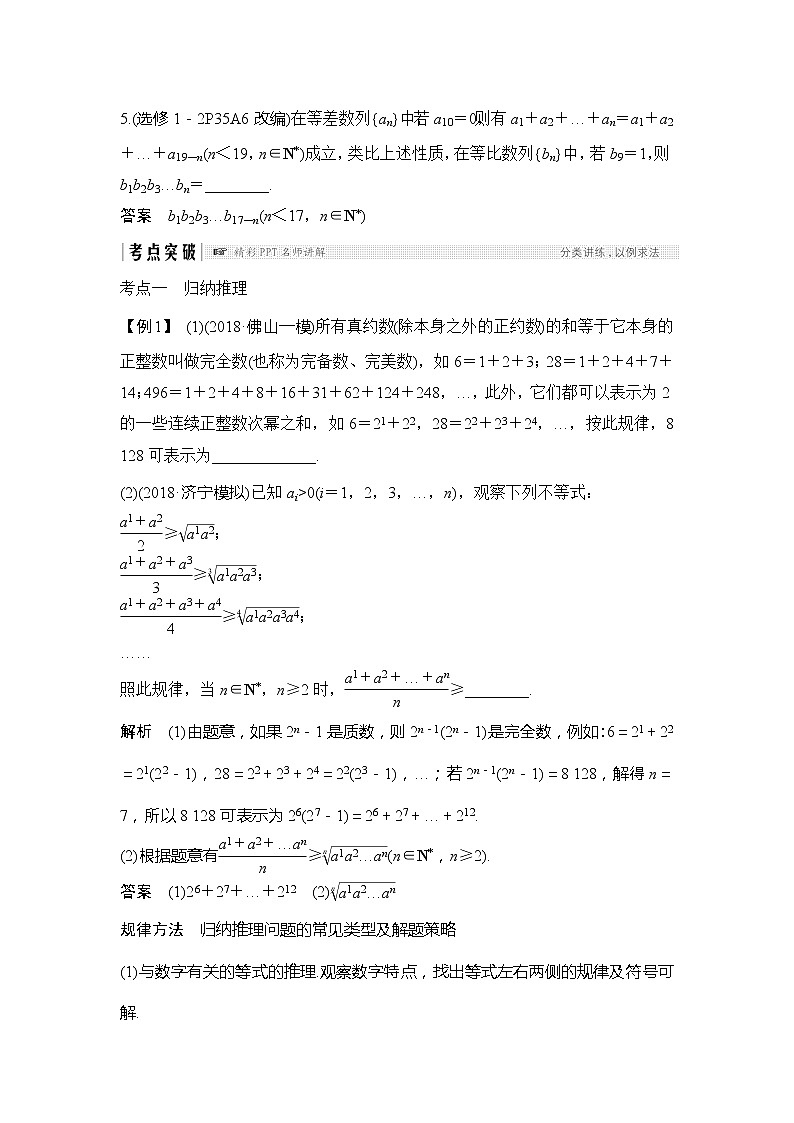 5.(选修1－2P35A6改编)在等差数列{an}中,若a10＝0,则有a1＋a2＋…＋an＝a1＋a2
＋…＋a19－n(n＜19，n∈N*)成立，类比上述性质，在等比数列{bn}中，若b9＝1，则
b1b2b3…bn＝________.
答案　b1b2b3…b17－n(n＜17，n∈N*)
考点突破 ☞ 精彩PPT名师讲解 分类讲练，以例求法
考点一　归纳推理
【例1】 (1)(2018·佛山一模)所有真约数(除本身之外的正约数)的和等于它本身的
正整数叫做完全数(也称为完备数、完美数)，如6＝1＋2＋3；28＝1＋2＋4＋7＋
14;496＝1＋2＋4＋8＋16＋31＋62＋124＋248，…，此外，它们都可以表示为2
的一些连续正整数次幂之和，如6＝2¹＋2²，28＝2²＋2³＋2⁴，…，按此规律，8
128可表示为_____________.
(2)(2018·济宁模拟)已知ai>0(i＝1，2，3，…，n)，观察下列不等式：
(a1＋a2)/2≥√(a1a2);
(a1＋a2＋a3)/3≥∛(a1a2a3);
(a1＋a2＋a3＋a4)/4≥∜(a1a2a3a4);
……
照此规律，当n∈N*，n≥2时，(a1＋a2＋…＋an)/n≥________.
解析　(1)由题意，如果2ⁿ－1是质数，则2ⁿ⁻¹(2ⁿ－1)是完全数，例如：6＝2¹＋2²
＝2¹(2²－1)，28＝2²＋2³＋2⁴＝2²(2³－1)，…；若2ⁿ⁻¹(2ⁿ－1)＝8 128，解得n＝
7，所以8 128可表示为2⁶(2⁷－1)＝2⁶＋2⁷＋…＋2¹².
(2)根据题意有(a1＋a2＋…an)/n≥ⁿ√(a1a2…an)(n∈N*，n≥2).
答案　(1)2⁶＋2⁷＋…＋2¹²　(2)ⁿ√(a1a2…an)
规律方法　归纳推理问题的常见类型及解题策略
(1)与数字有关的等式的推理.观察数字特点，找出等式左右两侧的规律及符号可
解.